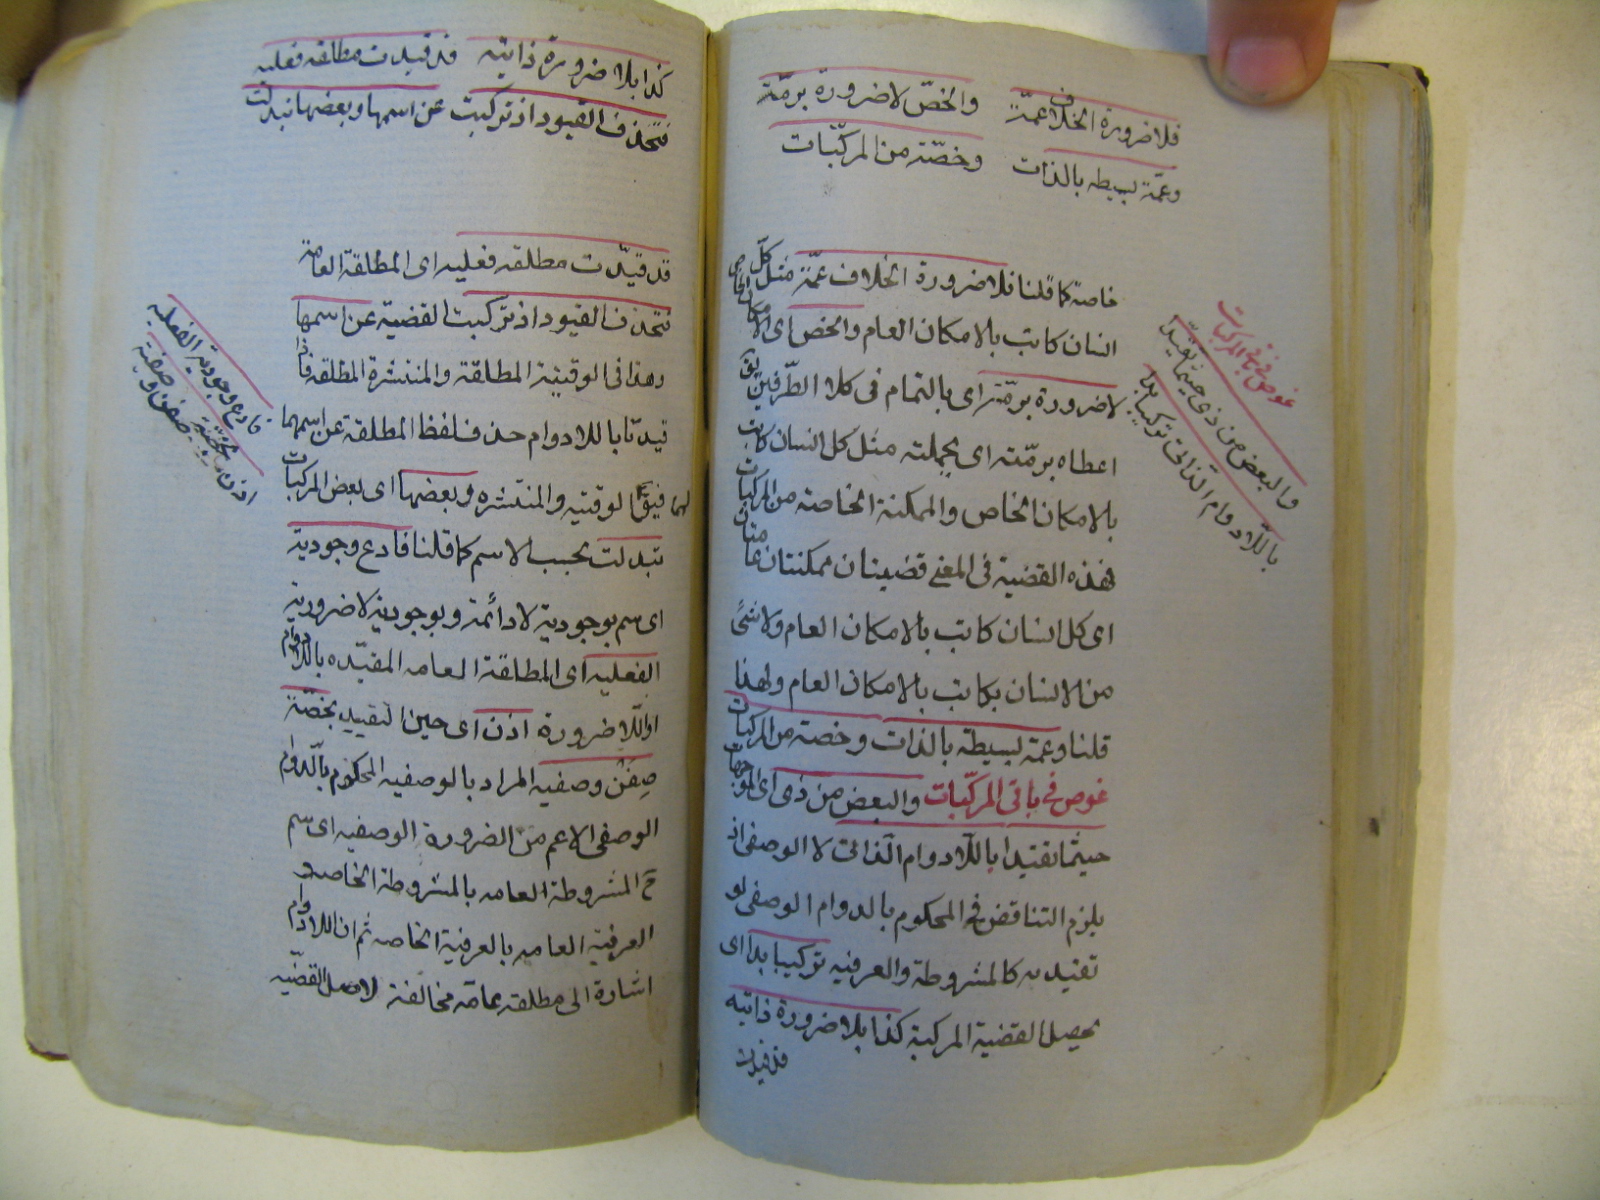 فلا ضرورة الخلاف عمّة والخصّ لا ضرورة برمّة
وعمّة بسيطه بالذات وخصّة من المركّبات
خاصة كما قلنا فلا ضرورة الخلاف عمّة مثل كلّ
انسان كاتب بالامكان العام والخص اى الامكان الخاص
لا ضرورة برمّة اى بالتمام فى كلا الطّرفين يق
اعطاه برمّته اى بجملته مثل كل انسان كاتب
بالامكان الخاص والممكنة الخاصة من المركبات
فهذه القضية فى المعنى قضيتان ممكنتان عامتان
اى كل انسان كاتب بالامكان العام ولا شئ
من الانسان بكاتب بالامكان العام ولهذا
قلنا وعمة بسيطة بالذات وخصة من المركبات
غوص فى باقى المركّبات والبعض من ذى اى الموجهات
حيثما تقتيدا باللّادوام الذاتى لا الوصفى اذ
يلزم التناقض فى المحكوم بالدوام الوصفى لو
تقيد به كالمشروطة والعرفيه تركيبا بدا اى
يحصل القضية المركبة كذا بلا ضرورة ذاتيه
قد قيدت
غوص فى باقى المركبات
والبعض من ذى حيثما تقيدا
باللّادوام الذاتى تركيبا بدا
كذا بلا ضرورة ذاتيه قد قيدت مطلقه فعليه
فتحذف القيود اذ تركبت عن اسمها وبعضها تبدلت
قد قيّدت مطلقه فعليه اى المطلقة العامة
فتحذف القيود اذ تركبت القضية عن اسمها
وهذا فى الوقتية المطلقة والمنتشرة المطلقه فاذا
قيدتا باللادوام حذف لفظ المطلقة عن اسمهما
فيق لهما الوقتيه والمنتشره وبعضها اى بعض المركبات
تبدلت بحسب الاسم كما قلنا فادع وجودية
اى سم بوجودية لا دائمة وبوجودية لا ضرورية
الفعليه اى المطلقة العامه المقيّده باللادوام
او اللّاضرورة اذن اى حين التقييد بخصّة
صِفَنْ وصفيه المراد بالوصفيه المحكوم بالّدوام
الوصفى الاعم من الضرورة الوصفيه اى سم
ح المشروطة العامه بالمشروطة الخاصه و
العرفية العامه بالعرفية الخاصه ثم ان اللادوام
اشارة الى مطلقه عامة مخالفة لاصل القضّيه
فادع وجودية الفعليه
اذن بخصّة صفن وصفية